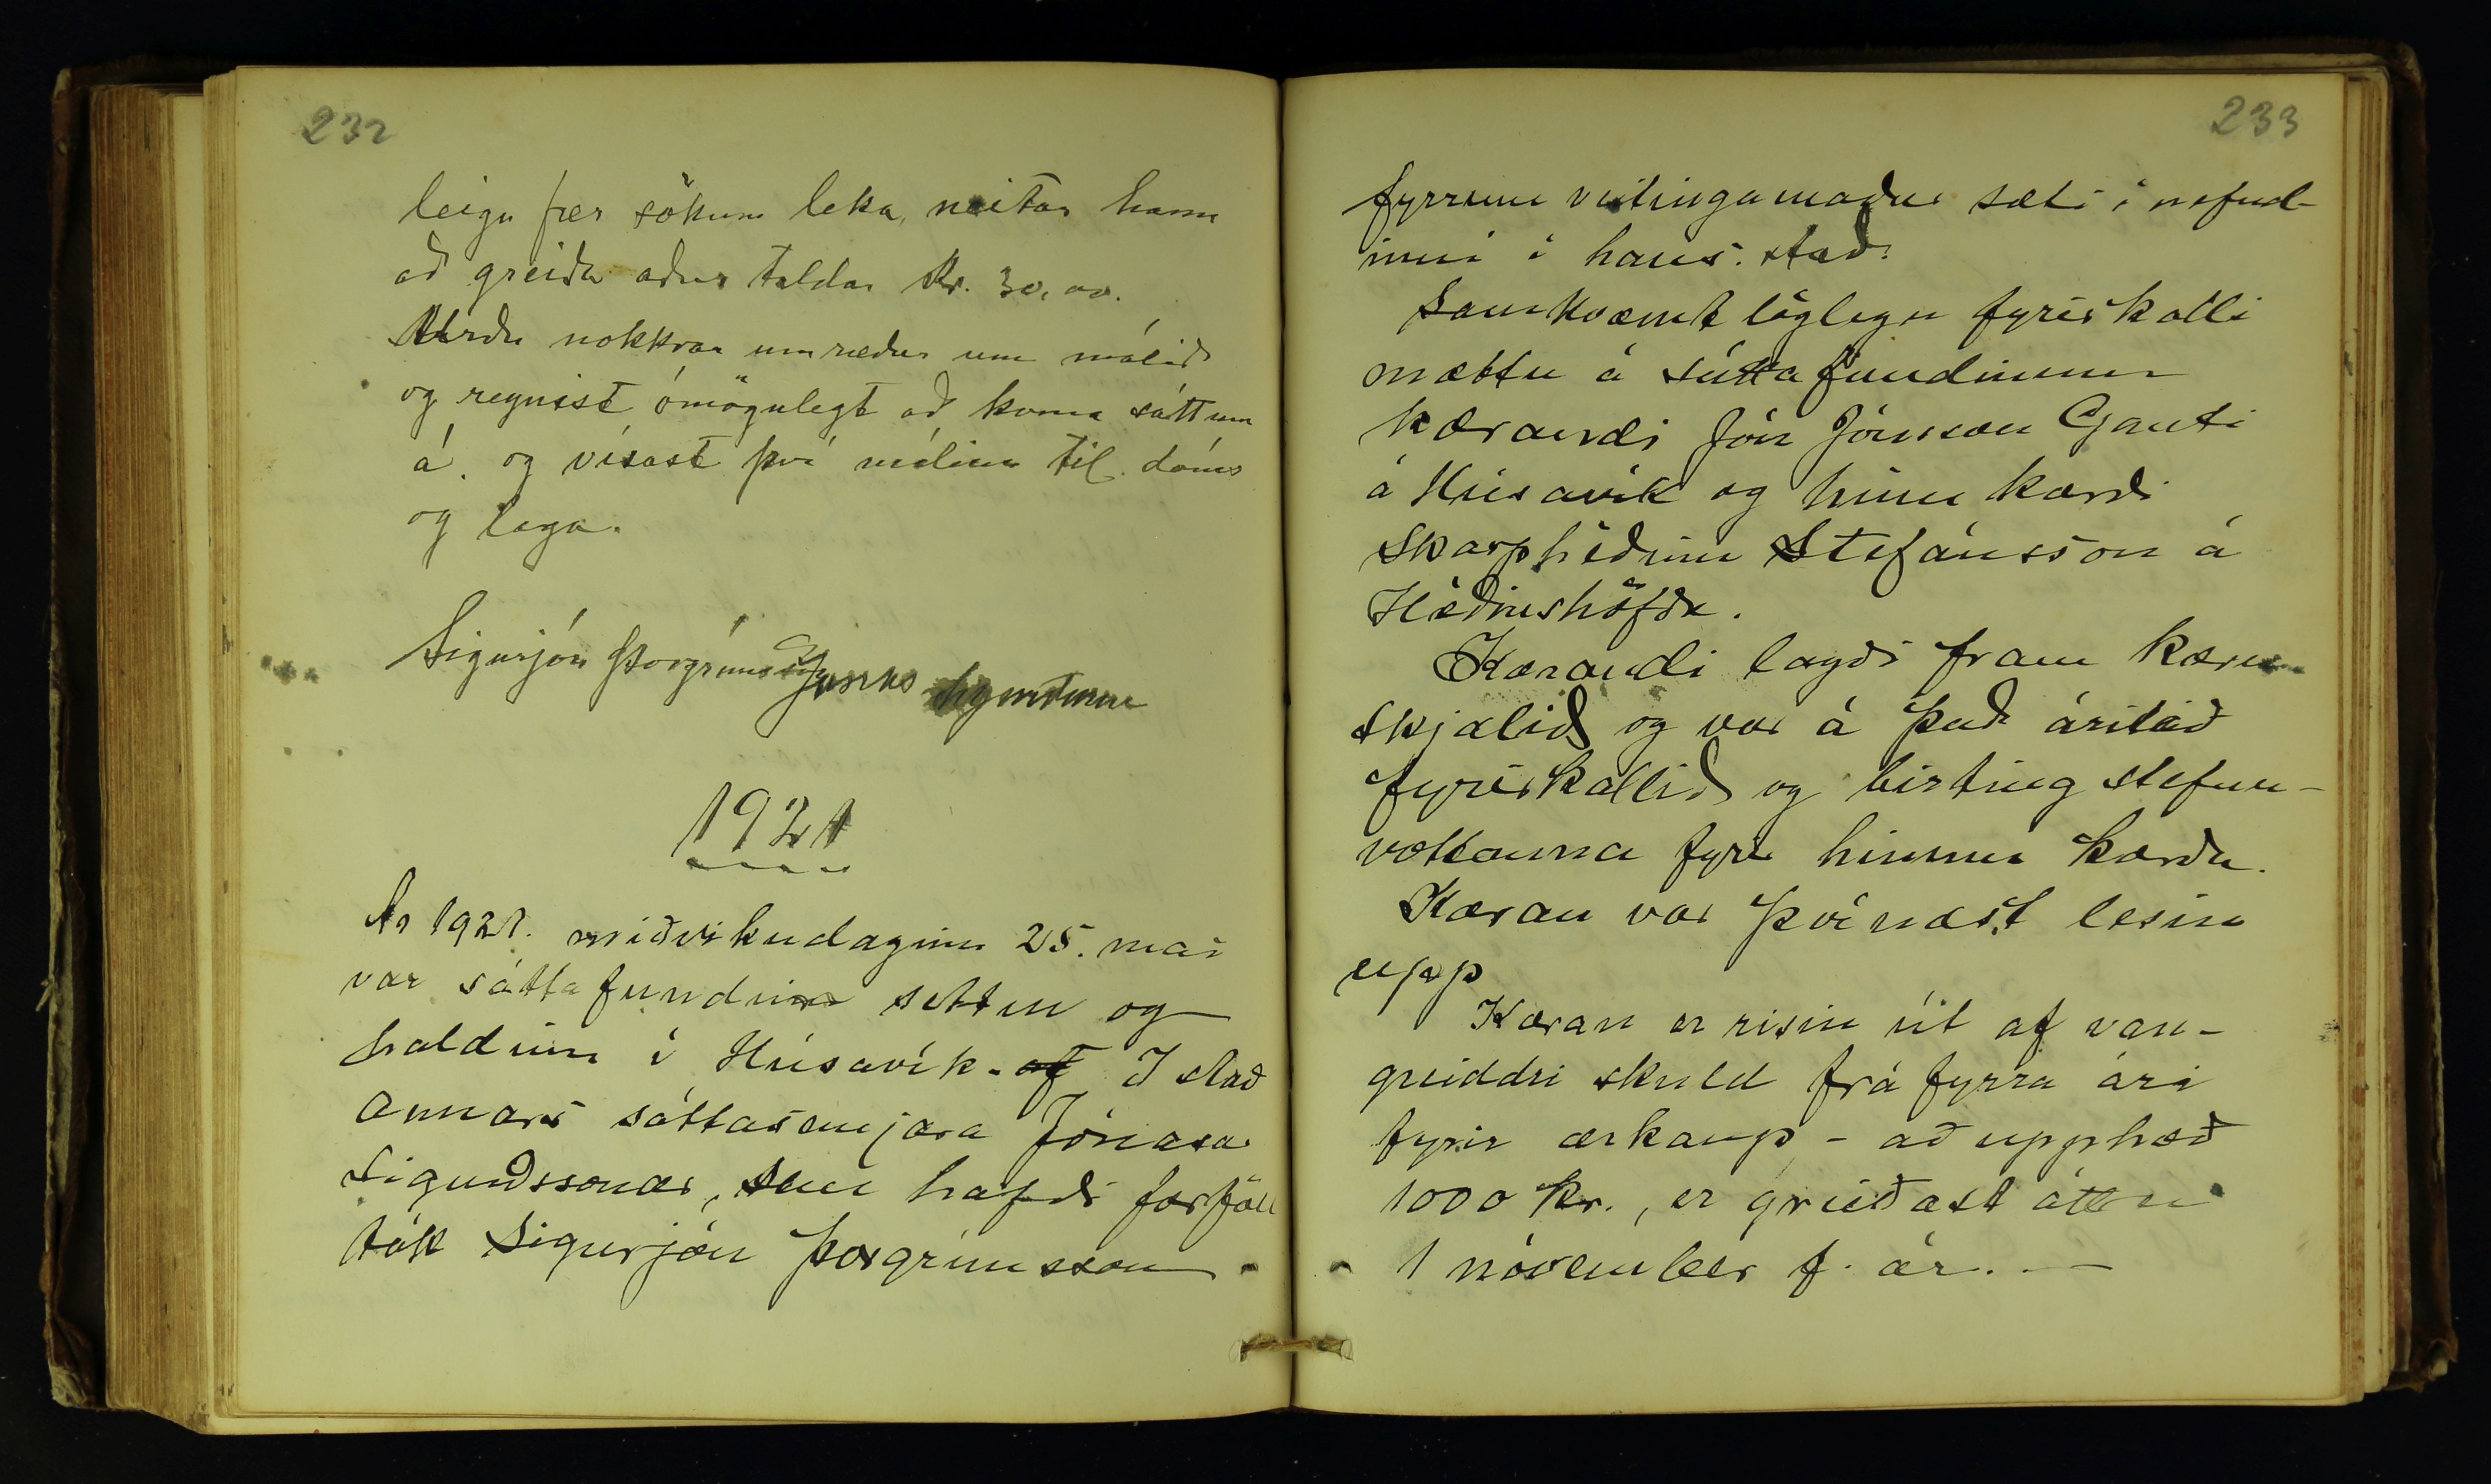 232
leigu fær sökum leka, neitar hann
að greiða aður taldar kr. 30,00.
Urðu nokkrar umræður um málið
og reynist ómögulegt að koma sáttum
á. og vísast því málinu til dóms
og laga.
Sigurjón Þorgrímsson Jónas Sigurðsson
1921
Ár 1921. miðvikudaginn 25. mai
var sáttafundur settur og
haldinn í Húsavík. af Í stað
annars sáttasemjara Jónasar
Sigurðssonar, sem hafði forföll
tók Sigurjón Þorgrímsson
233
fyrrum veitingamaður sæti í nefnd-
inni í hans stað.
Samkvæmt löglegu fyrirkalli
mættu á sáttafundinum
kærandi Jón Jónsson Gauti
á Húsavík og hinn kærði
Skarphéðinn Stefánsson á
Héðinshöfða.
Kærandi lagði fram kæru
skjalið og var á það áritað
fyrirkallið og birting stefnu-
vottanna fyrir hinum kærða.
Kæran var þvínæst lesin
upp
Kæran er risin út af van-
greiddri skuld frá fyrra ári
fyrir ærkaup - að upphæð
1000 kr., er greiðast átti
1 nóvember f. ár. -